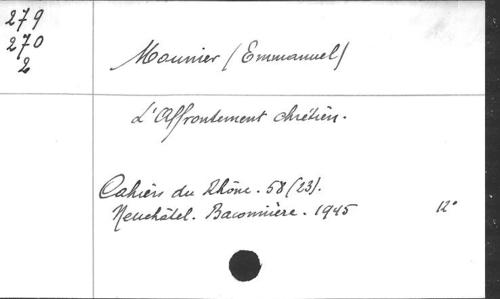 279
270
2
Mounier (Emmanuel)
L'Affrontement chrétien.
Cahiers du Rhône. 58 (23).
Neuchâtel. Baconnière. 1945 12°